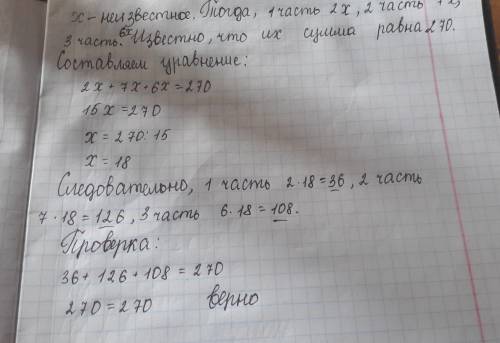 x - неизвестное. Тогда, 1 часть 2x, 2 часть 7x,
3 часть 6x. Известно, что их сумма равна 270.
Составляем уравнение:
2x + 7x + 6x = 270
15x = 270
x = 270 : 15
x = 18
Следовательно, 1 часть 2·18 = 36, 2 часть
7·18 = 126, 3 часть 6·18 = 108.
Проверка:
36 + 126 + 108 = 270
270 = 270 верно